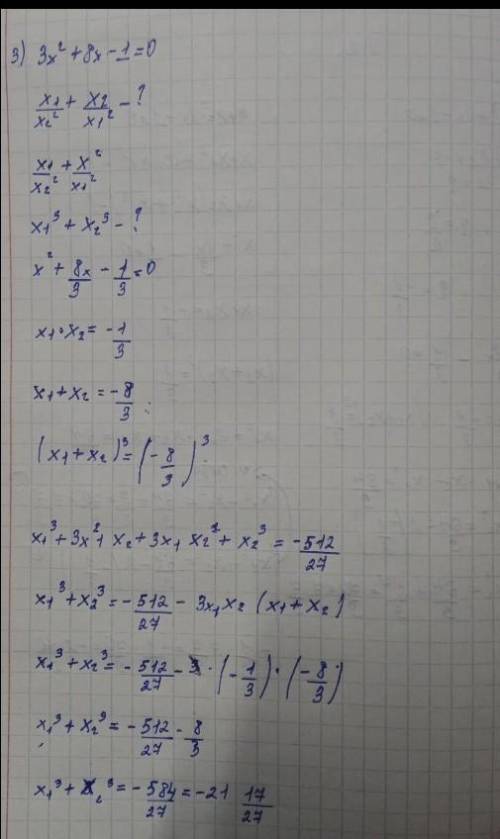 3) 3x² + 8x - 1 = 0
x₁/x₂² + x₂/x₁² - ?
x₁/x₂² + x²/x₁²
x₁³ + x₂³ - ?
x² + 8x/3 - 1/3 = 0
x₁ · x₂ = -1/3
x₁ + x₂ = -8/3;
(x₁ + x₂)³ = (-8/3)³
x₁³ + 3x²₁ x₂ + 3x₁ x₂² + x₂³ = -512/27
x₁³ + x₂³ = -512/27 - 3x₁x₂ (x₁ + x₂)
x₁³ + x₂³ = -512/27 - 3 · (-1/3) · (-8/3)
x₁³ + x₂³ = -512/27 - 8/3
x₁³ + x₂³ = -584/27 = -21 17/27